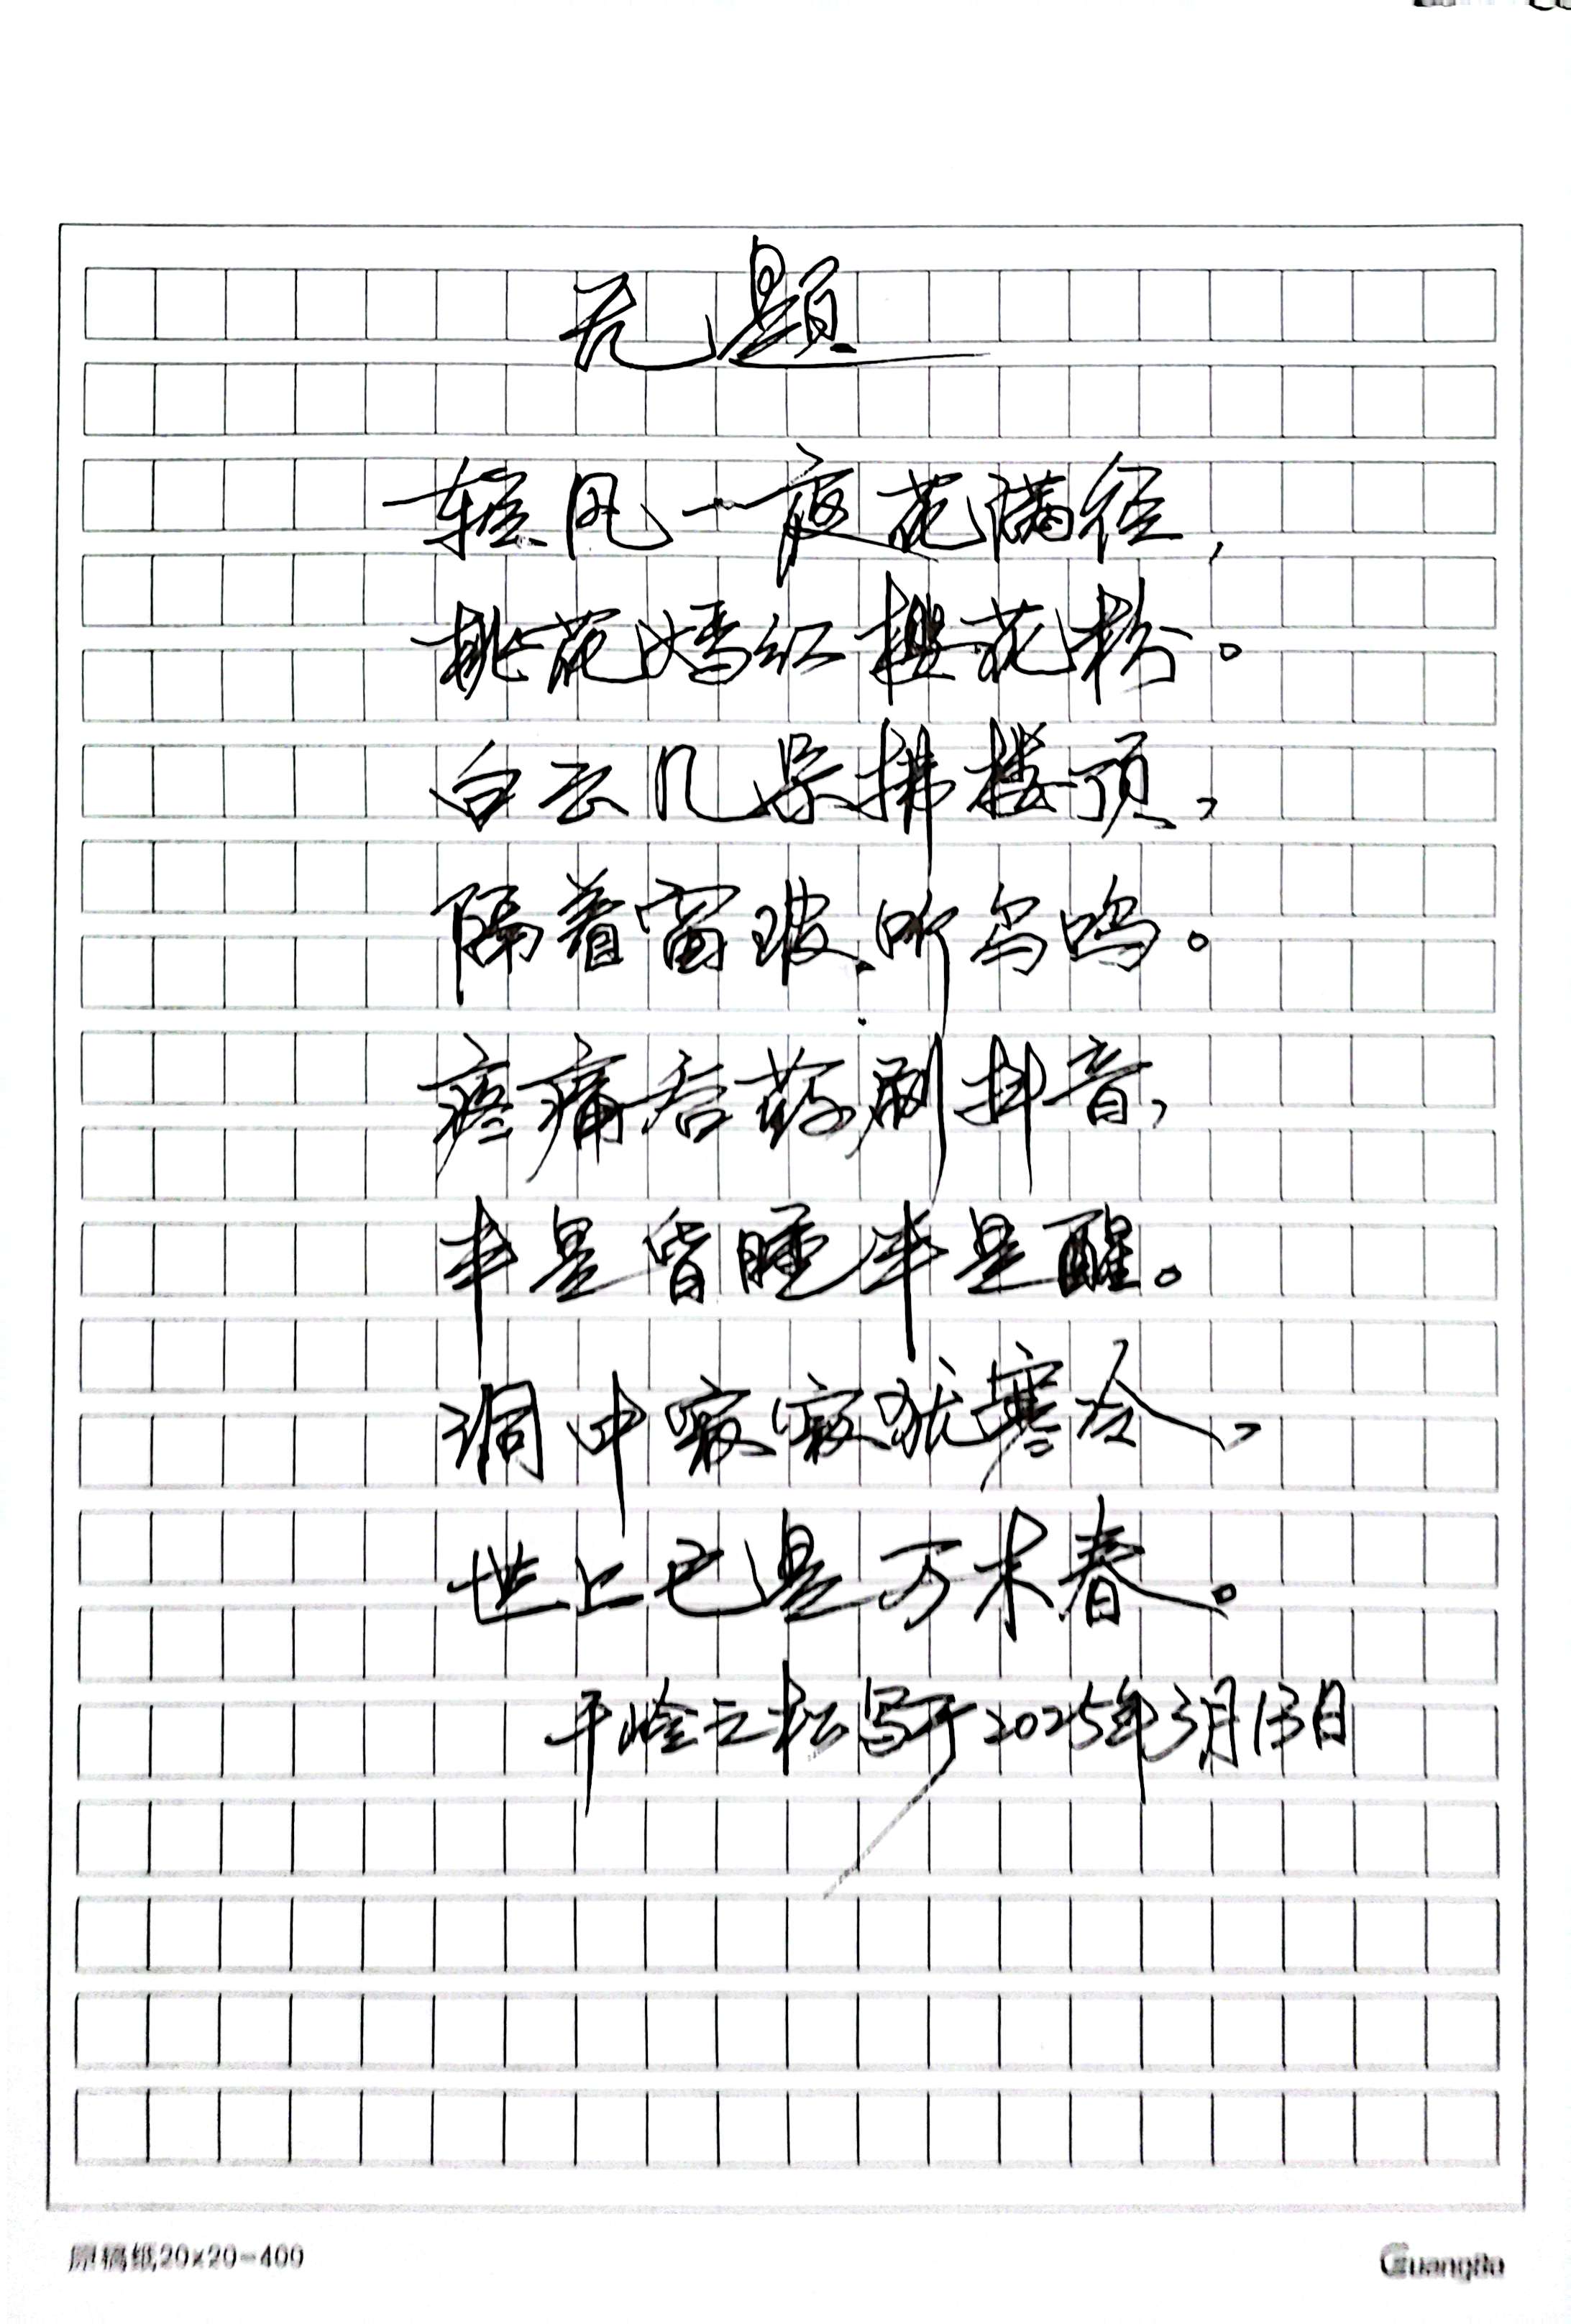 无题
轻风一夜花满径，
桃花嫣红樱花粉。
白云几朵拂楼顶，
隔着窗玻听鸟鸣。
疼痛吞药刷抖音，
半是昏睡半是醒。
洞中寂寂犹寒冷，
世上已是万木春。
平峰云松写于2025年3月13日
原稿纸20×20-400
Guangbo